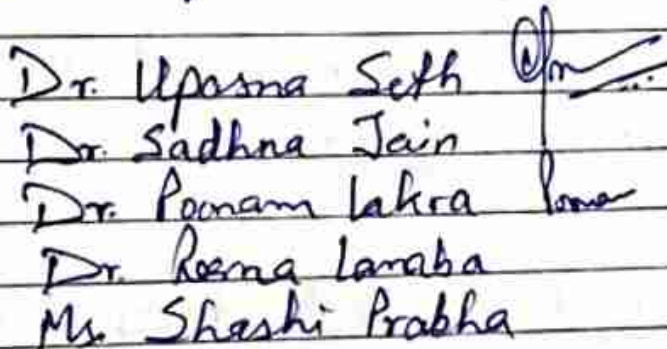 Dr. Upasna Seth
Dr. Sadhna Jain
Dr. Poonam Lakra
Dr. Reema Lamba
Ms. Shashi Prabha